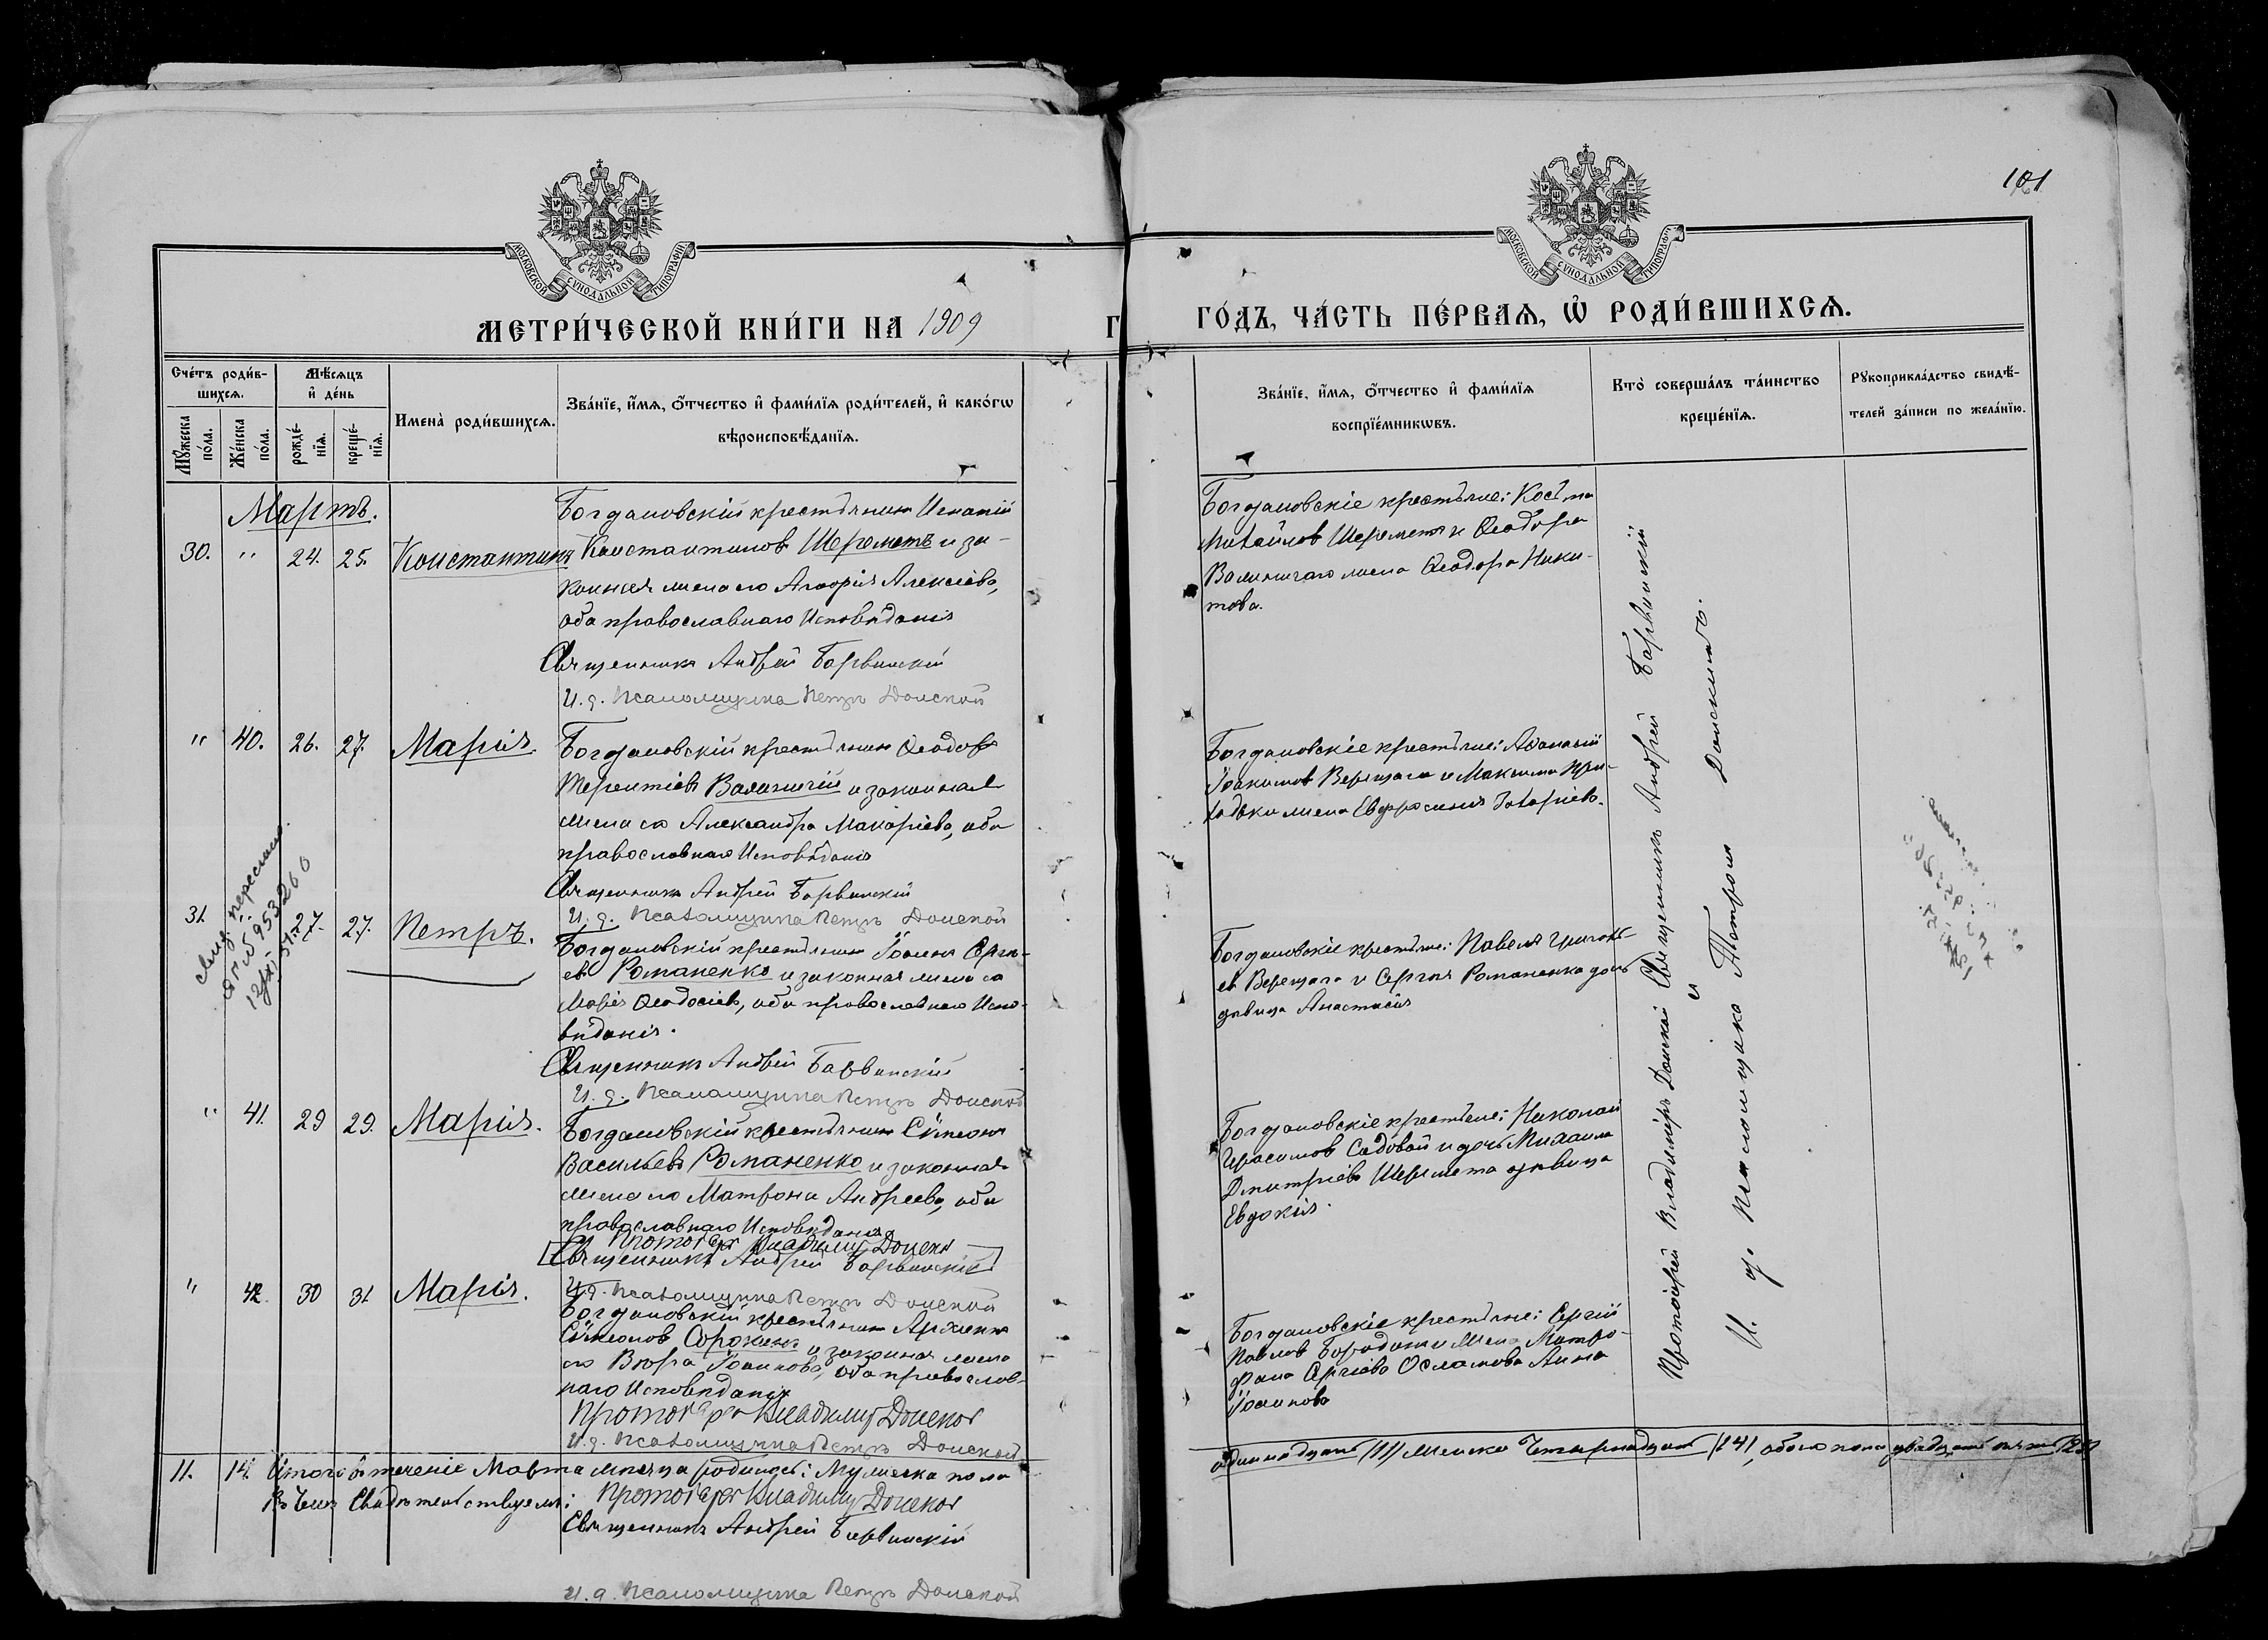 101
МОСКОВСКОЙ СѴНОДАЛЬНОЙ ТИПОГРАФІИ
МОСКОВСКОЙ СѴНОДАЛЬНОЙ ТИПОГРАФІИ
МЕТРИ́ЧЕСКОЙ КНИ́ГИ НА 1909
ГО́ДЪ, ЧА́СТЬ ПЕ́РВАѦ, Ѡ҆ РОДИ́ВШИХСѦ.
Сче́тъ роди́в-
шихсѧ.
Мꙋ́жеска по́ла.
Же́нска по́ла.
Мѣ́сѧцъ
и҆ де́нь
рожде́-
нїѧ.
креще́-
нїѧ.
Имена̀ роди́вшихсѧ.
Зва́нїе, и҆́мѧ, ѻ҆́тчество и҆ фами́лїѧ роди́телей, и҆ како́гѡ
вѣроисповѣ́данїѧ.
Зва́нїе, и҆́мѧ, ѻ҆́тчество и҆ фами́лїѧ
воспрїе́мникѡвъ.
Кто̀ соверша́лъ та́инство
креще́нїѧ.
Рꙋкоприкла́дство свидѣ́-
телей за́писи по жела́нїю.
Мартъ.
30. " 24. 25. Константинъ
Богдановскій крестьянинъ Игнатій
Константиновъ Шереметъ и за-
конная жена его Агафія Алексіева,
оба православнаго исповѣданія
Священникъ Андрей Барвинскій
И. д. Псаломщика Петръ Донской
Богдановскіе крестьяне: Косьма
Михаиловъ Шереметъ и Ѳеодора
Валиничаго жена Ѳеодора Ники-
това.
" 40. 26. 27. Марія.
Богдановскій крестьянинъ Ѳеодоръ
Терентіевъ Валиничій и законная
жена его Александра Макаріева, оба
православнаго исповѣданія
Священникъ Андрей Барвинскій
И. д. Псаломщика Петръ Донской
Богдановскіе крестьяне: Аѳанасій
Іоакимовъ Верещага и Максима При-
ходька жена Евфросинія Захаріева.
31. " 27. 27. Петръ.
Богдановскій крестьянинъ Іоаннъ Сергі-
евъ Романенко и законная жена его
Марія Ѳеодосіева, оба православнаго испо-
вѣданія.
Священникъ Андрей Барвинскій
И. д. Псаломщика Петръ Донской
Богдановскіе крестьяне: Павелъ Григорь-
евъ Верещага и Сергія Романенка дочь
дѣвица Анастасія
" 41. 29 29. Марія.
Богдановскій крестьянинъ Сѵмеонъ
Васильевъ Романенко и законная
жена его Матрона Андреева, оба
православнаго исповѣданія
Протоіерей Владимиръ Донской
Священникъ Андрей Барвинскій
И. д. Псаломщика Петръ Донской
Богдановскіе крестьяне: Николай
Герасимовъ Садовой и дочь Михаила
Дмитріева Шеремета дѣвица
Евдокія.
" 42. 30 31. Марія.
Богдановскій крестьянинъ Архипъ
Сѵмеоновъ Сорокинъ и законная жена
его Вѣра Іоаннова, оба православ-
наго исповѣданія
Протоіерей Владимиръ Донской
И. д. Псаломщика Петръ Донской
Богдановскіе крестьяне: Сергій
Павловъ и жена Митро-
фана Сергіева Анна
Іоаннова
Протоіерей Владиміръ Донской Священникъ Андрей Барвинскій
и
И. д. Псаломщика Петръ Донской.
11. 14. Итого въ теченіе Марта мѣсяца родилось: Мужеска пола
одиннадцать /11/ Женска Четырнадцать /14/, обоего пола двадцать пять /25/
Въ чемъ свидѣтельствуемъ: Протоіерей Владимиръ Донской
Священникъ Андрей Барвинскій
И. д. Псаломщика Петръ Донской